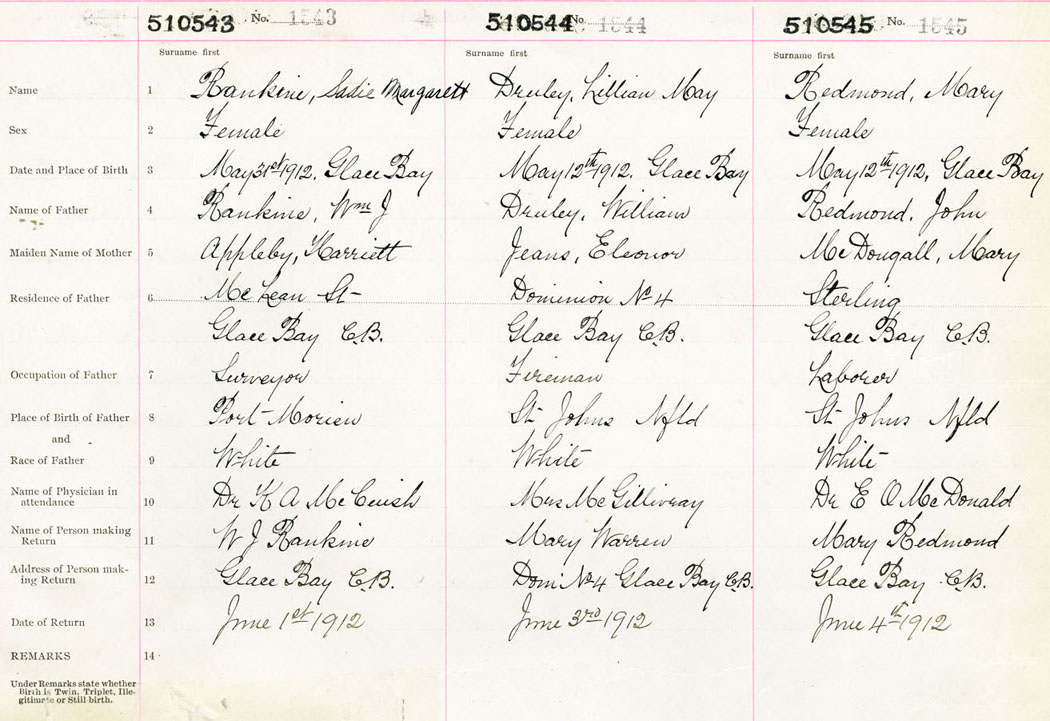 510543 No. 1543 510544 No. 1544 510545 No. 1545
Surname first Surname first Surname first
Name 1 Rankine, Sadie Margarett Druley, Lillian May Redmond, Mary
Sex 2 Female Female Female
Date and Place of Birth 3 May 31st 1912. Glace Bay May 12th 1912. Glace Bay May 12th 1912, Glace Bay
Name of Father 4 Rankine, Wm J Druley, William Redmond, John
Maiden Name of Mother 5 Appleby, Harriett Jeans, Eleonor McDougall, Mary
Residence of Father 6 McLean St- Dominion No 4 Sterling
Glace Bay C.B. Glace Bay C.B. Glace Bay C.B.
Occupation of Father 7 Surveyor Fireman Laborer
Place of Birth of Father 8 Port-Morien St Johns Nfld St Johns Nfld
and
Race of Father 9 White White White
Name of Physician in
attendance 10 Dr K A McCuish Mrs McGillivray Dr E O McDonald
Name of Person making
Return 11 W J Rankine Mary Warren Mary Redmond
Address of Person mak-
ing Return 12 Glace Bay C.B. Dom: No 4 Glace Bay C.B. Glace Bay C.B.
Date of Return 13 June 1st 1912 June 3rd 1912 June 4th 1912
REMARKS 14
Under Remarks state whether
Birth is Twin, Triplet, Ille-
gitimate or Still-birth.